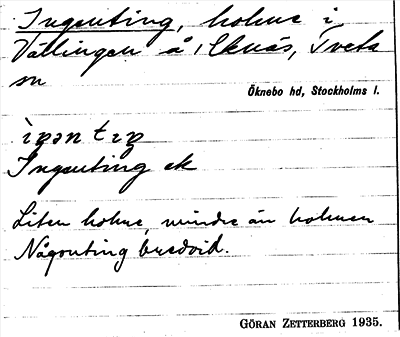 Ingenting, holme i
Vällingen å Eknäs, Tveta
sn
Öknebo hd, Stockholms l.
ìŋən tıŋ
Ingenting ek
Liten holme, mindre än holmen
Någonting bredvid.
GÖRAN ZETTERBERG 1935.